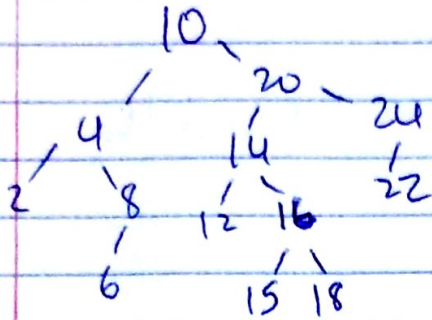 10
20
4 14 24
2 8 12 16 22
6 15 18